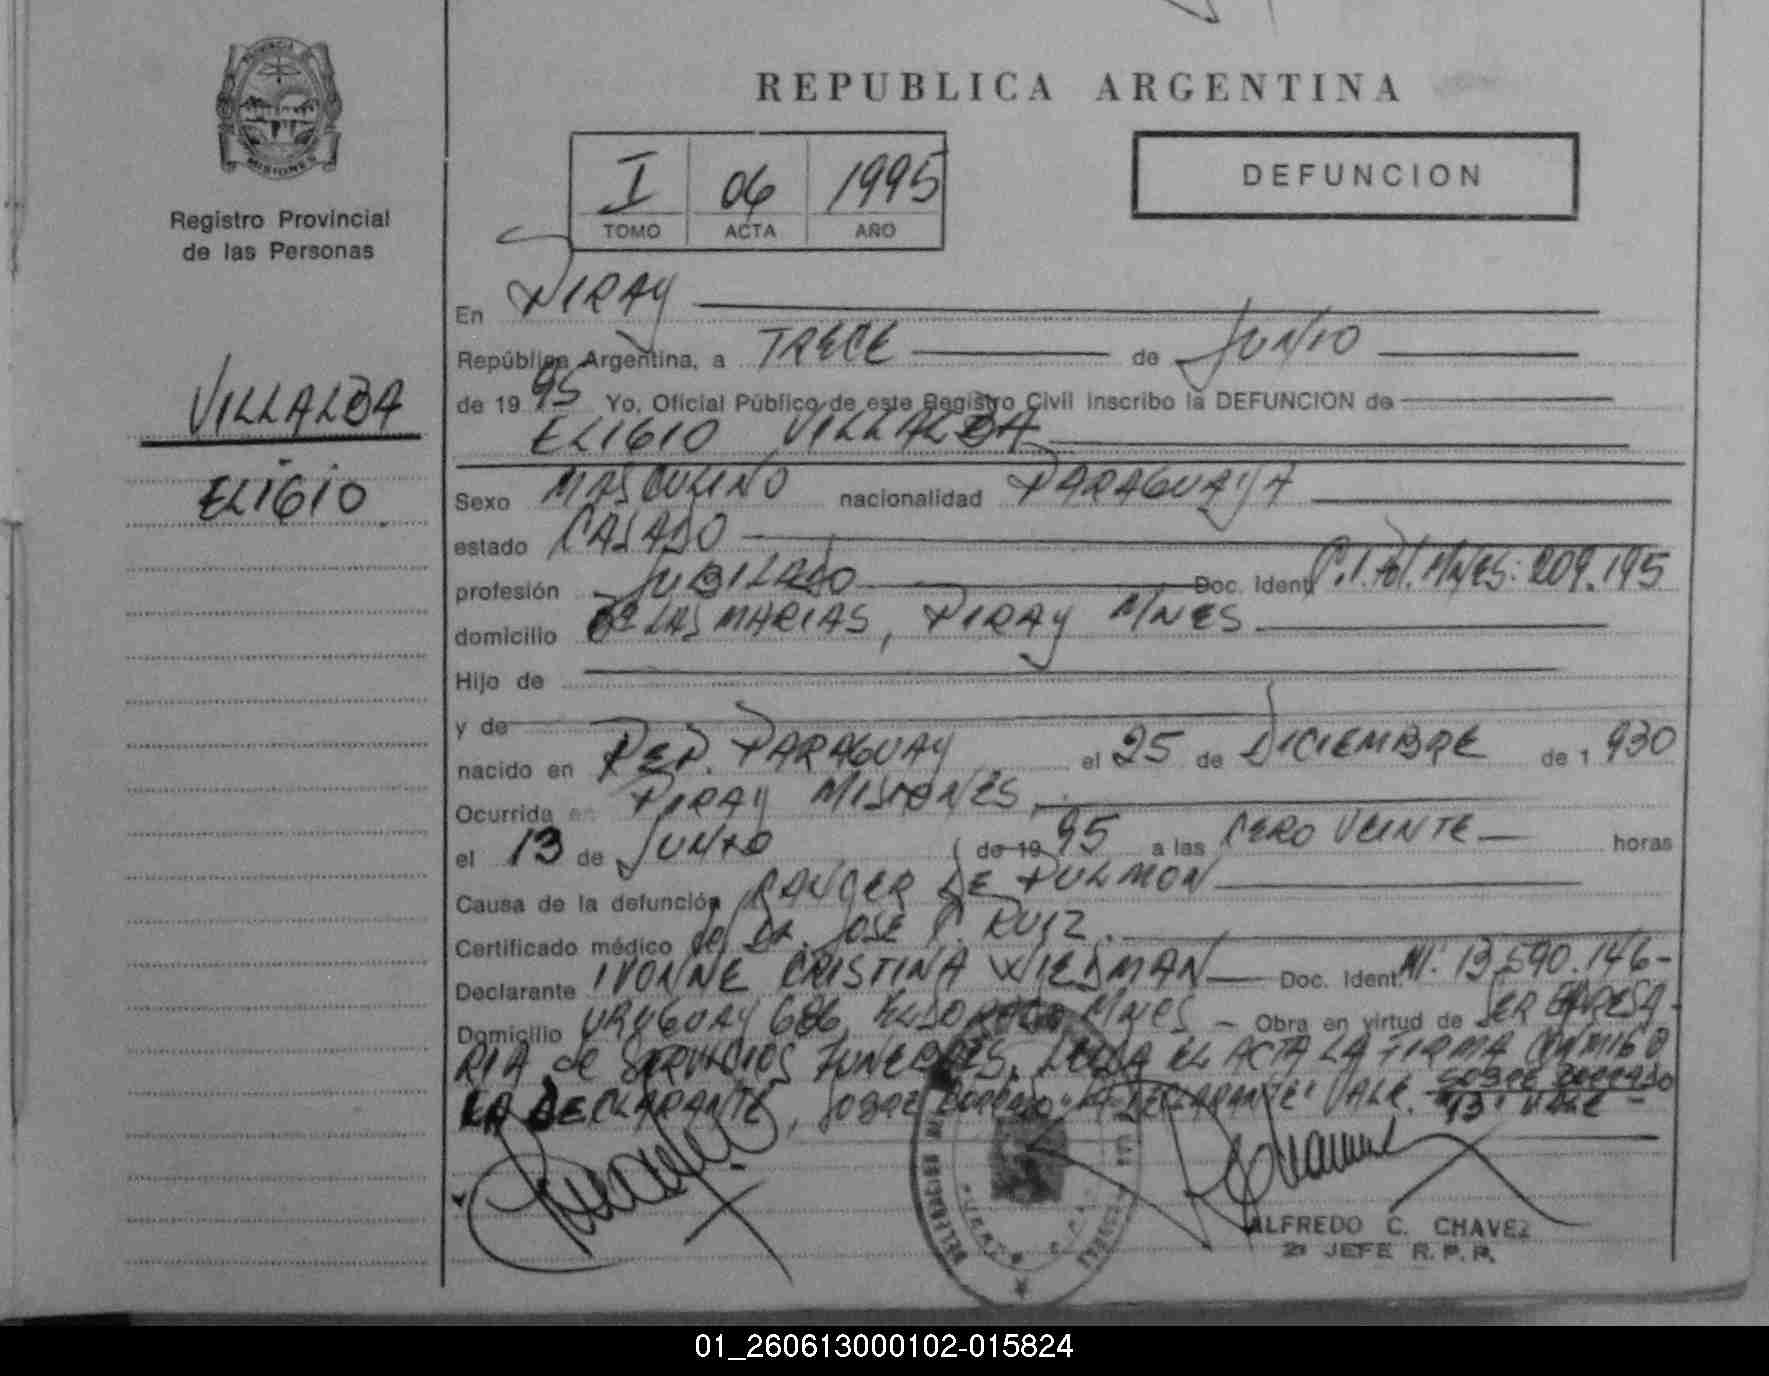 REPUBLICA ARGENTINA
PROVINCIA
MISIONES
Registro Provincial
de las Personas
I 06 1995
TOMO ACTA AÑO
DEFUNCION
VILLALBA
ELIGIO
En PIRAY
República Argentina, a TRECE de JUNIO
de 1995 Yo, Oficial Público de este Registro Civil inscribo la DEFUNCION de
ELIGIO VILLALBA
Sexo MASCULINO nacionalidad PARAGUAYA
estado CASADO
profesión JUBILADO Doc. Ident. C.I. Pol. Mnes: 209.195
domicilio DE LAS MARIAS, PIRAY MNES
Hijo de
y de
nacido en REP. PARAGUAY el 25 de DICIEMBRE de 1930
Ocurrida en PIRAY MISIONES
el 13 de JUNIO de 1995 a las CERO VEINTE horas
Causa de la defunción CANCER DE PULMON
Certificado médico del DR. JOSE C. RUIZ.
Declarante IVONNE CRISTINA WIEDMAN Doc. Ident. MI: 13.590.146-
Domicilio URUGUAY 686, ELDORADO MNES - Obra en virtud de SER EMPRESA-
RIA de SERVICIOS FUNEBRES. LEIDA EL ACTA LA FIRMA CONMIGO
LA DECLARANTE, SOBRE BORRADO "LA DECLARANTE" VALE. SOBRE BORRADO
"13" VALE -
ALFREDO C. CHAVEZ
2º JEFE R.P.P.
01_260613000102-015824